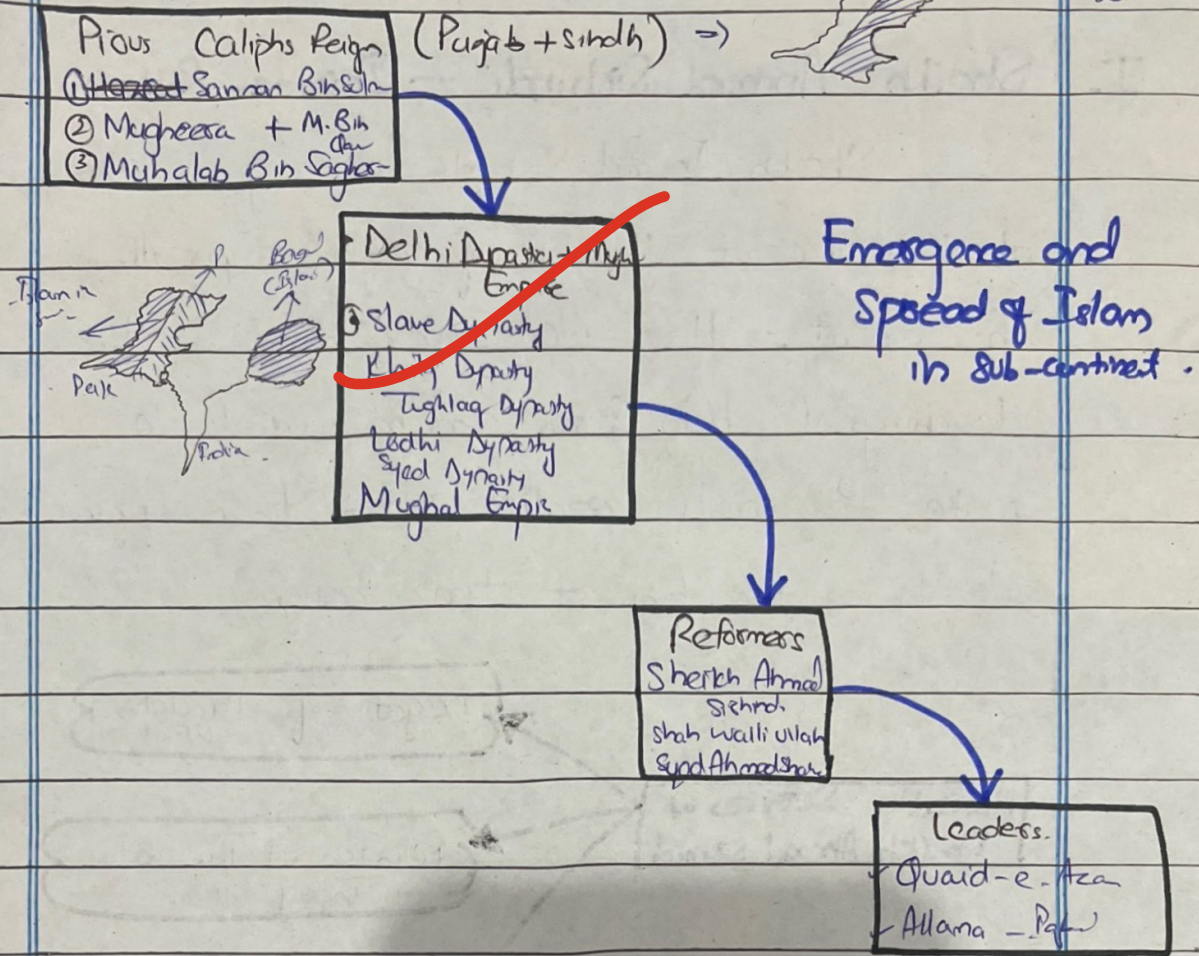 Pious Caliphs Reign (Punjab + Sindh) =>
① Hazrat Sannan Bin Suln
② Mugheera + M. Bin
③ Muhalab Bin Saghar
Delhi Dynasties + Mugh
Empire
Slave Dynasty
Khilji Dynasty
Tughlaq Dynasty
Lodhi Dynasty
Syed Dynasty
Mughal Empir
P
India
Emergence and
Spread of Islam
in Sub-continent.
Reformers
Sheikh Ahmed
Sirhndi
Shah Walli ullah
Syed Ahmed
Leaders.
Quaid-e-Aza
Allama - Iqbal